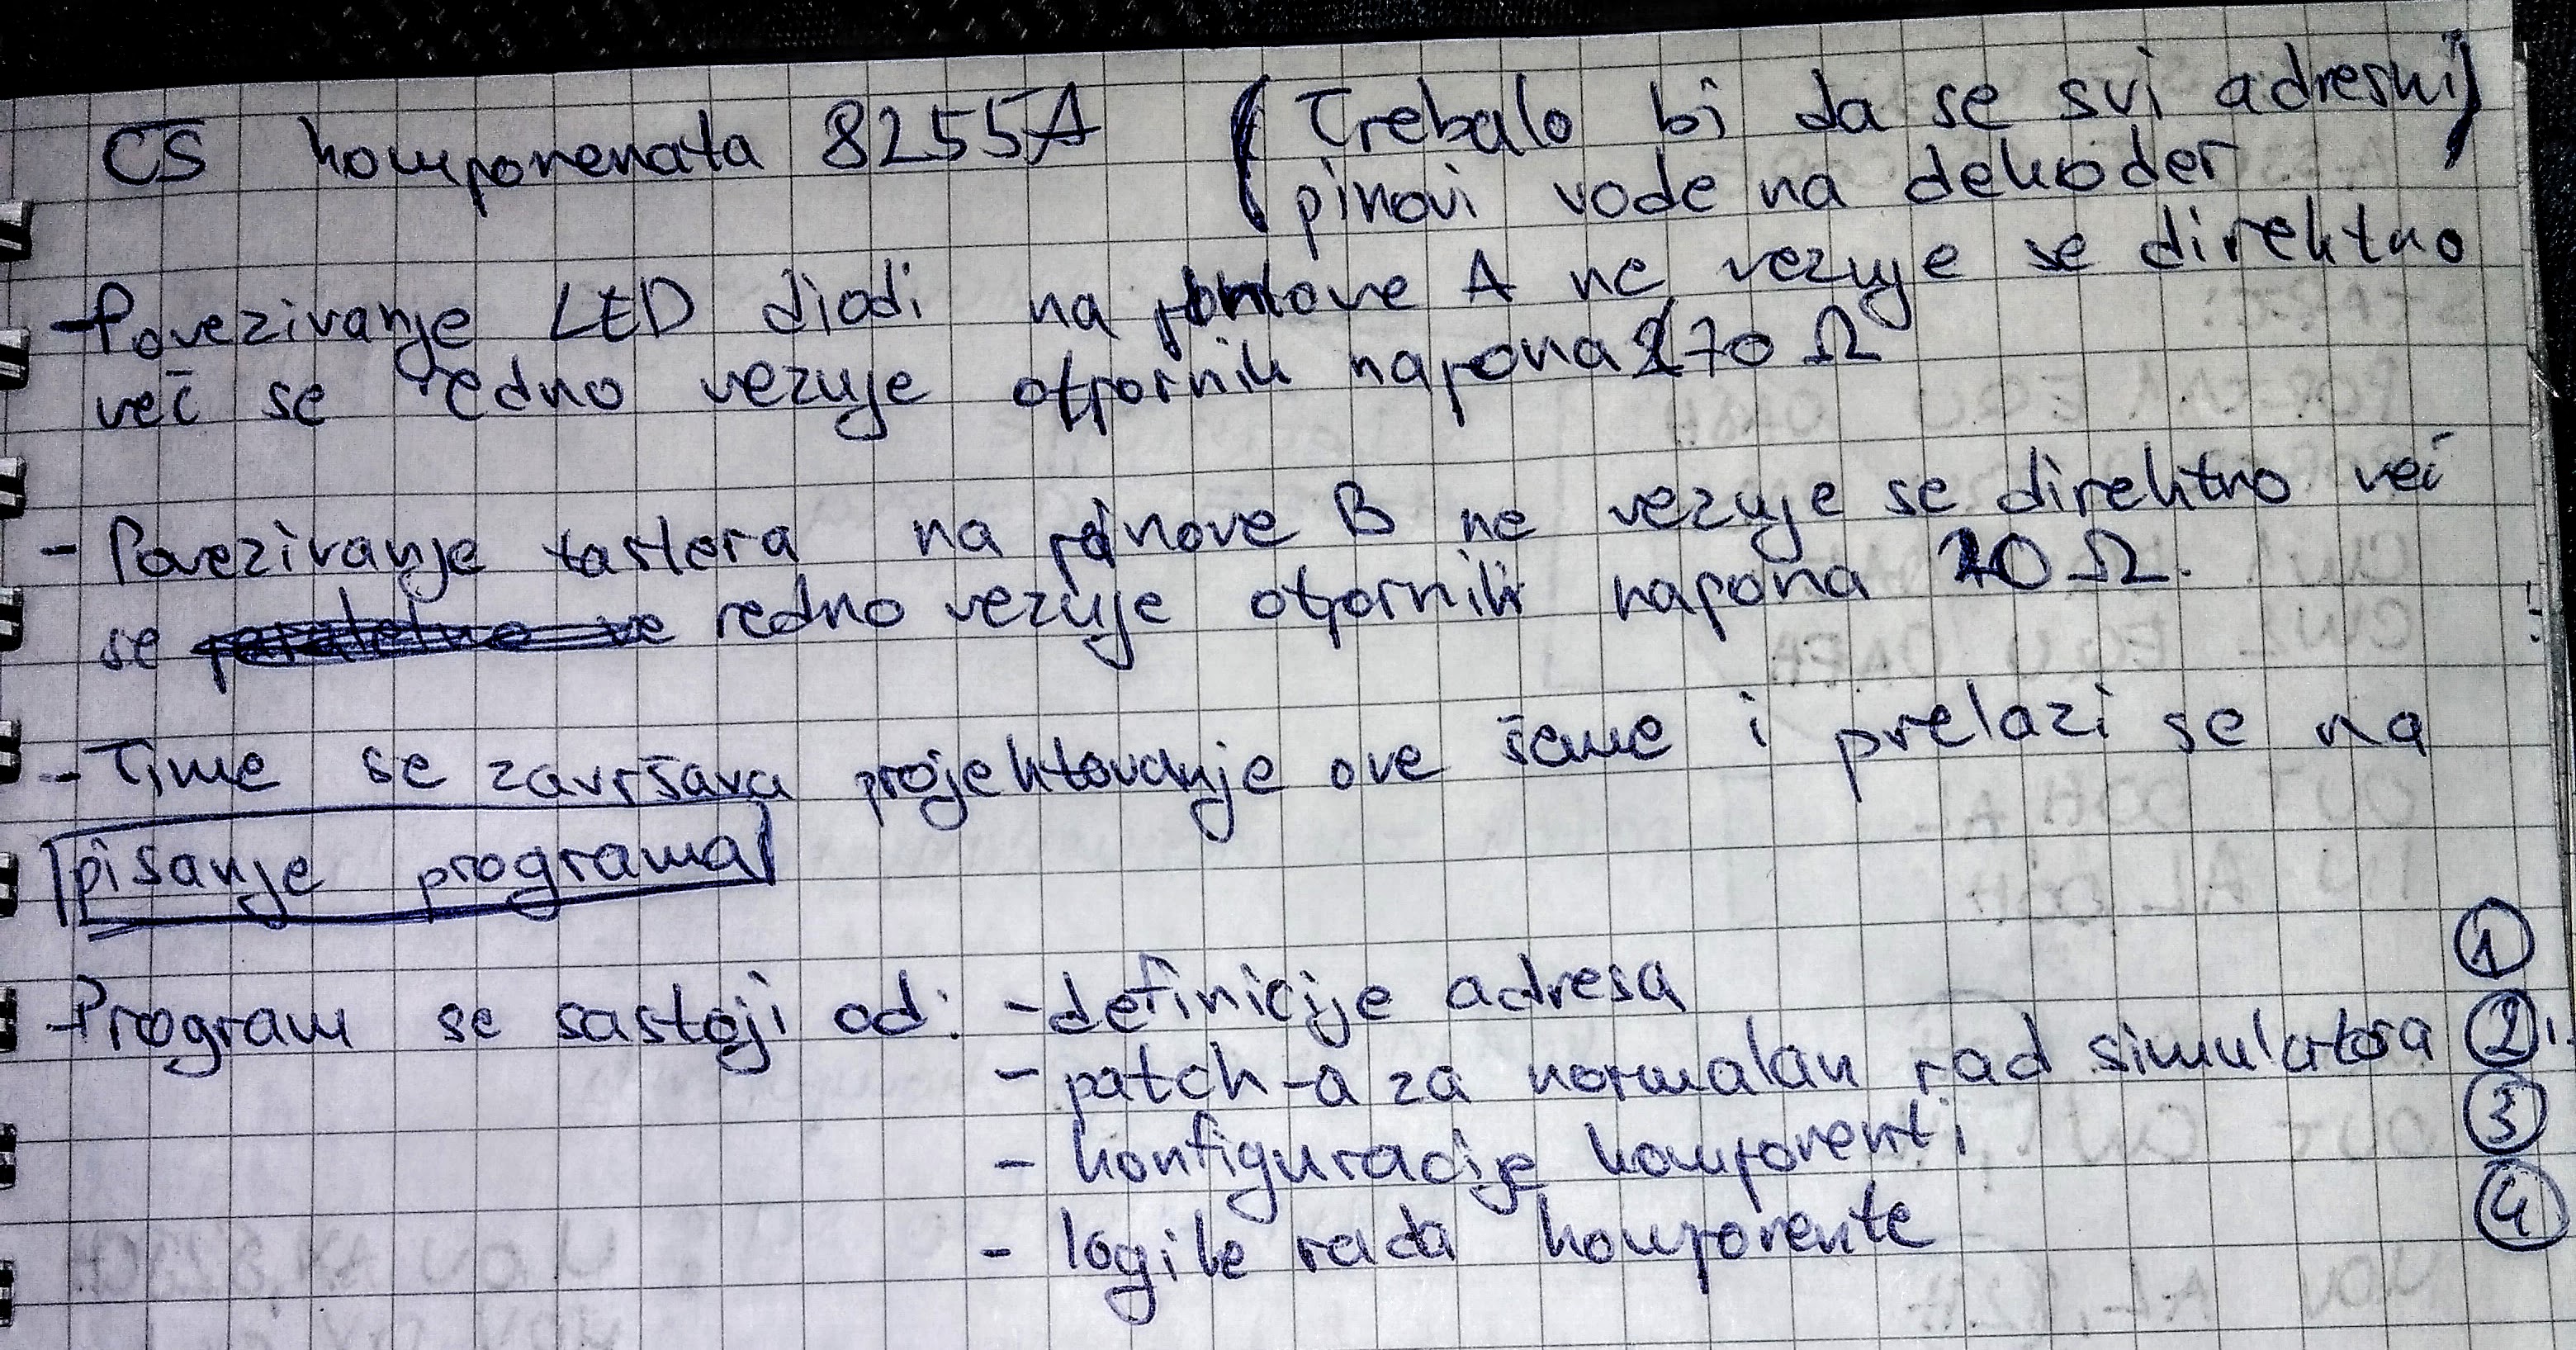 C̅S̅ komponenata 8255A (Trebalo bi da se svi adresni)
pinovi vode na dekoder
- Povezivanje LED diodi na pinove A ne vezuje se direktno
već se redno vezuje otpornik napona 270 Ω
- Povezivanje tastera na pinove B ne vezuje se direktno već
se redno vezuje otpornik napona 10 Ω.
- Time se završava projektovanje ove šeme i prelazi se na
pisanje programa
- Program se sastoji od: - definicije adresa ①
- patch-a za normalan rad simulatora ②
- konfiguracije komponenti ③
- logike rada komponente ④